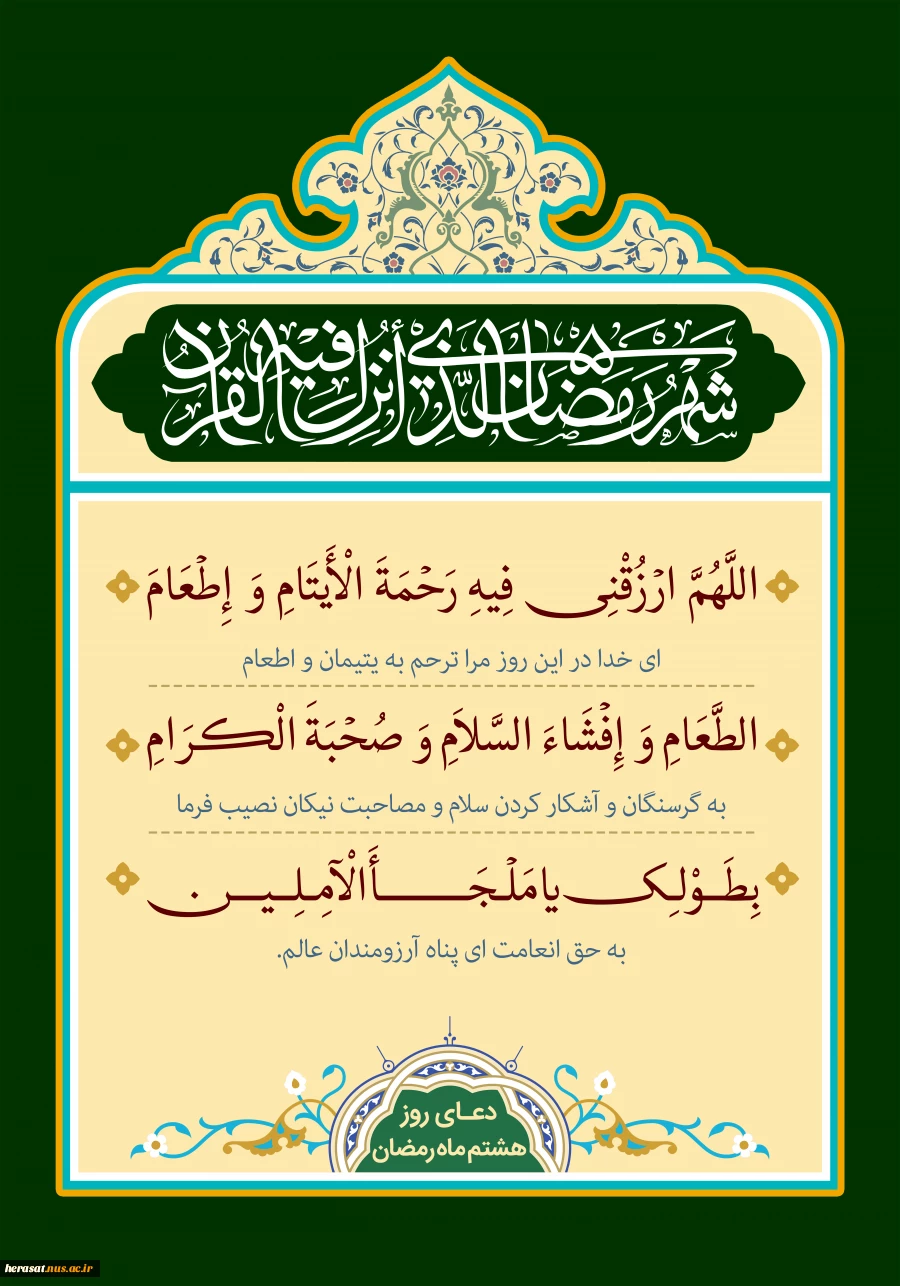 شَهْرُ رَمَضَانَ الَّذِي أُنْزِلَ فِيهِ الْقُرْآنُ
اللَّهُمَّ ارْزُقْنِی فِيهِ رَحْمَةَ الْأَيْتَامِ وَ إِطْعَامَ
ای خدا در این روز مرا ترحم به یتیمان و اطعام
الطَّعَامِ وَ إِفْشَاءَ السَّلاَمِ وَ صُحْبَةَ الْكَرَامِ
به گرسنگان و آشکار کردن سلام و مصاحبت نیکان نصیب فرما
بِطَوْلِک یا مَلْجَأَ الْآمِلِین
به حق انعامت ای پناه آرزومندان عالم.
دعای روز
هشتم ماه رمضان
herasat.nus.ac.ir